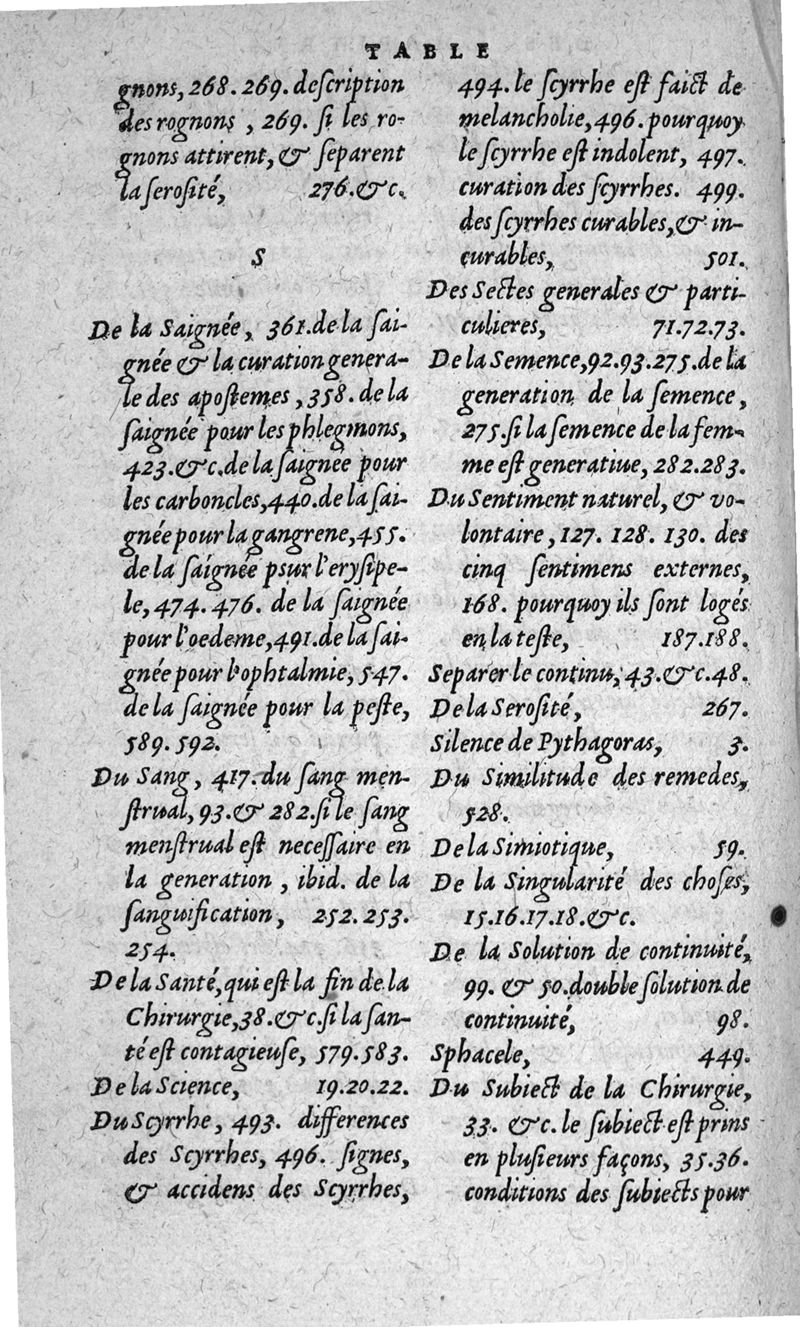 TABLE
gnons, 268. 269. deſcription
des rognons , 269. ſi les ro-
gnons attirent, & ſeparent
la ſeroſité, 276. &c.
S
De la Saignée, 361. de la ſai-
gnée & la curation genera-
le des apoſtemes , 358. de la
ſaignée pour les phlegmons,
423. &c. de la ſaignée pour
les carboncles, 440. de la ſai-
gnée pour la gangrene, 455.
de la ſaignée psur l'eryſipe-
le, 474. 476. de la ſaignée
pour l'oedeme, 491. de la ſai-
gnée pour l'ophtalmie, 547.
de la ſaignée pour la peſte,
589. 592.
Du Sang, 417. du ſang men-
ſtrual, 93. & 282. ſi le ſang
menſtrual eſt neceſſaire en
la generation , ibid. de la
ſanguification, 252. 253.
254.
De la Santé, qui eſt la fin de la
Chirurgie, 38. &c. ſi la ſan-
té eſt contagieuſe, 579. 583.
De la Science, 19. 20. 22.
Du Scyrrhe, 493. differences
des Scyrrhes, 496. ſignes,
& accidens des Scyrrhes,
494. le ſcyrrhe eſt faict de
melancholie, 496. pourquoy
le ſcyrrhe eſt indolent, 497.
curation des ſcyrrhes. 499.
des ſcyrrhes curables, & in-
curables, 501.
Des Sectes generales & parti-
culieres, 71. 72. 73.
De la Semence, 92. 93. 275. de la
generation de la ſemence,
275. ſi la ſemence de la fem-
me eſt generatiue, 282. 283.
Du Sentiment naturel, & vo-
lontaire, 127. 128. 130. des
cinq ſentimens externes,
168. pourquoy ils ſont logés
en la teſte, 187. 188.
Separer le continu, 43. &c. 48.
De la Seroſité, 267.
Silence de Pythagoras, 3.
Du Similitude des remedes,
528.
De la Simiotique, 59.
De la Singularité des choſes,
15. 16. 17. 18. &c.
De la Solution de continuité,
99. & 50. double ſolution de
continuité, 98.
Sphacele, 449.
Du Subiect de la Chirurgie,
33. &c. le ſubiect eſt prins
en pluſieurs façons, 35. 36.
conditions des ſubiects pour